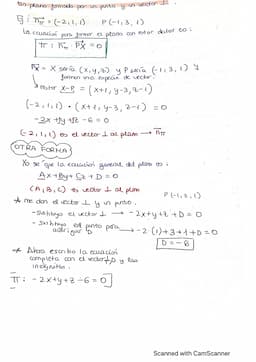 un plano formado por un punto y un vector ⊥.
Ej: n⃗π = (-2,1,1)   P(-1,3,1)
La ecuación para formar el plano con estos datos es:
π: n⃗π · PX⃗ = 0
PX⃗ = X sería (x,y,z) y P sería (-1,3,1) y
forman una especie de vector.
Vector X-P = (x+1, y-3, z-1)
(-2,1,1) · (x+1, y-3, z-1) = 0
-2x+y+z-6=0
(-2,1,1) es el vector ⊥ al plano → n⃗π
OTRA FORMA
Yo se que la ecuación general del plano es:
Ax+By+Cz+D=0
(A,B,C) es vector ⊥ al plano
* me dan el vector ⊥ y un punto.   P(-1,3,1)
- Sustituyo el vector ⊥ → -2x+y+z+D=0
- Sustituyo el punto para averiguar D → -2·(-1)+3+1+D=0
D=-6
* Ahora escribo la ecuación
completa con el vector, D y las
incógnitas.
π: -2x+y+z-6=0
Scanned with CamScanner